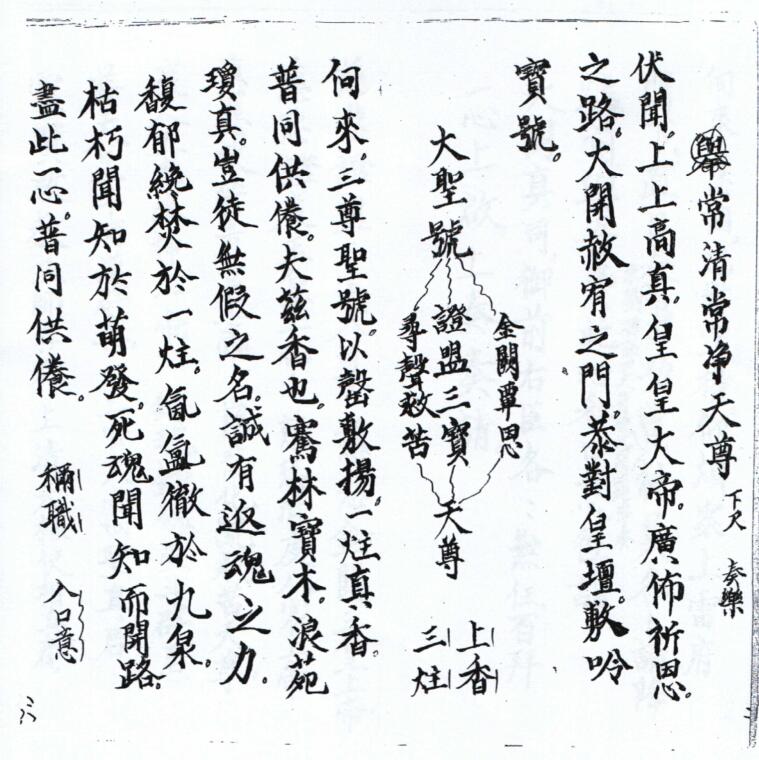 舉常清常净天尊 下尺 奏樂
伏聞。上上高真。皇皇大帝。廣佈祈恩。
之路。大開赦宥之門。恭對皇壇。敷吟
寶號。
大聖號 金闕覃恩 證盟三寶 尋聲救苦 天尊 上香 三炷
何來。三尊聖號。以罄敷揚。一炷真香。
普同供養。夫茲香也。騫林寶木。浪苑
瓊真。豈徒無假之名。誠有返魂之力。
馥郁纔焚於一炷。氤氳徹於九泉。
枯朽聞知於萌發。死魂聞知而開路。
盡此一心。普同供養。 稱職 入口意